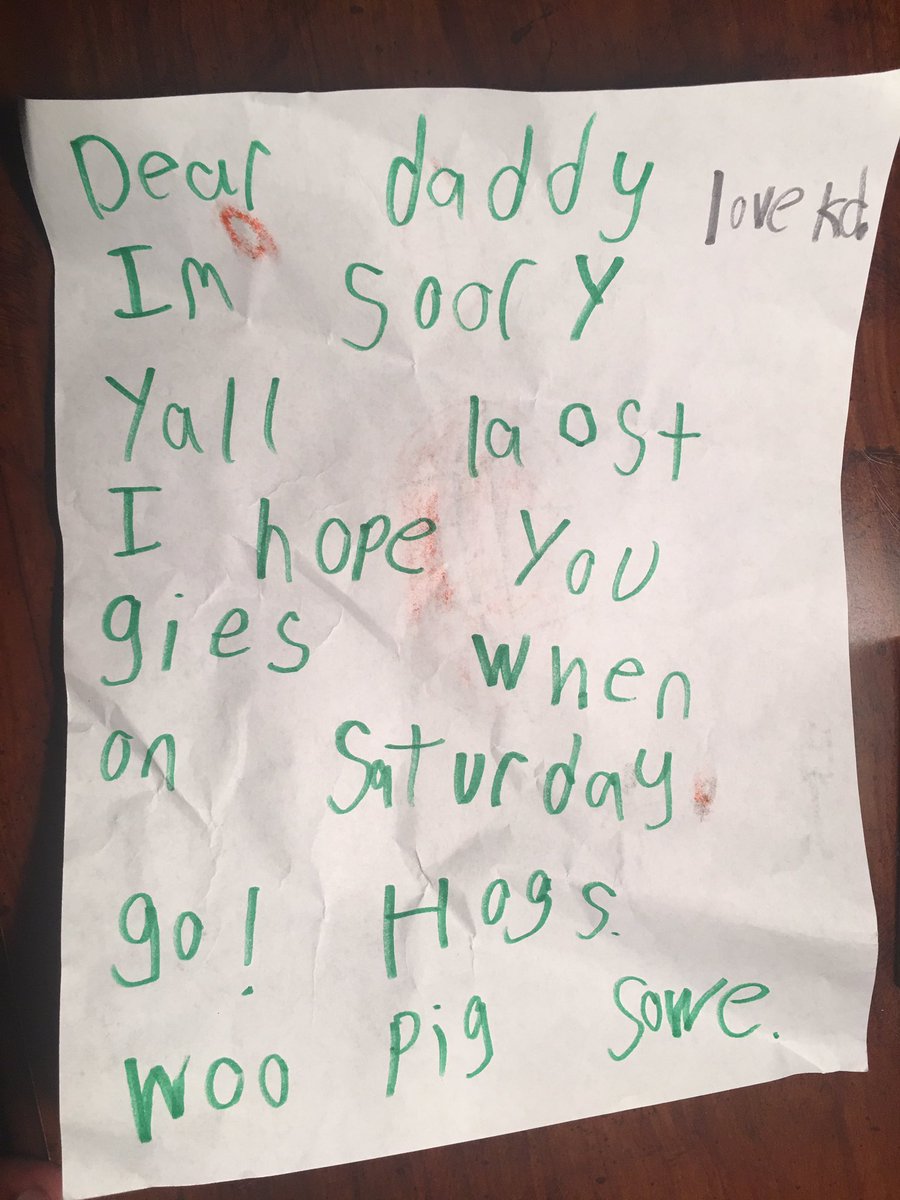 Dear daddy
love kd.
Im soory
Yall laost
I hope you
gies when
on Saturday.
go! Hogs.
woo pig sowe.